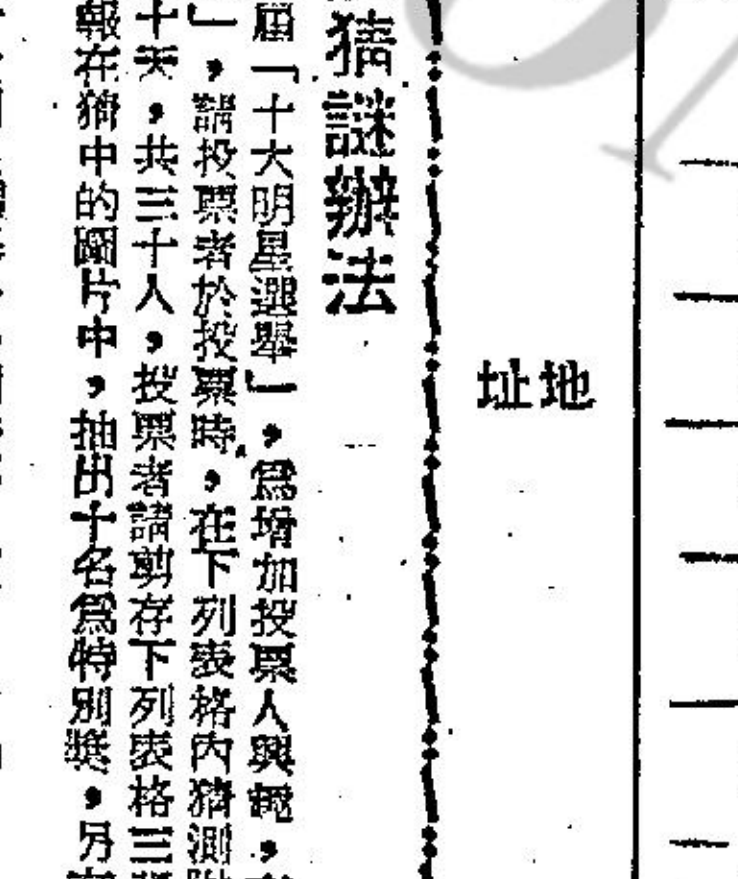 地址
猜謎辦法
屆「十大明星選舉」，為增加投票人興趣，
」，請投票者於投票時，在下列表格內猜測
十天，共三十人，投票者請剪存下列表格三
報在猜中的圖片中，抽出十名為特別獎，另